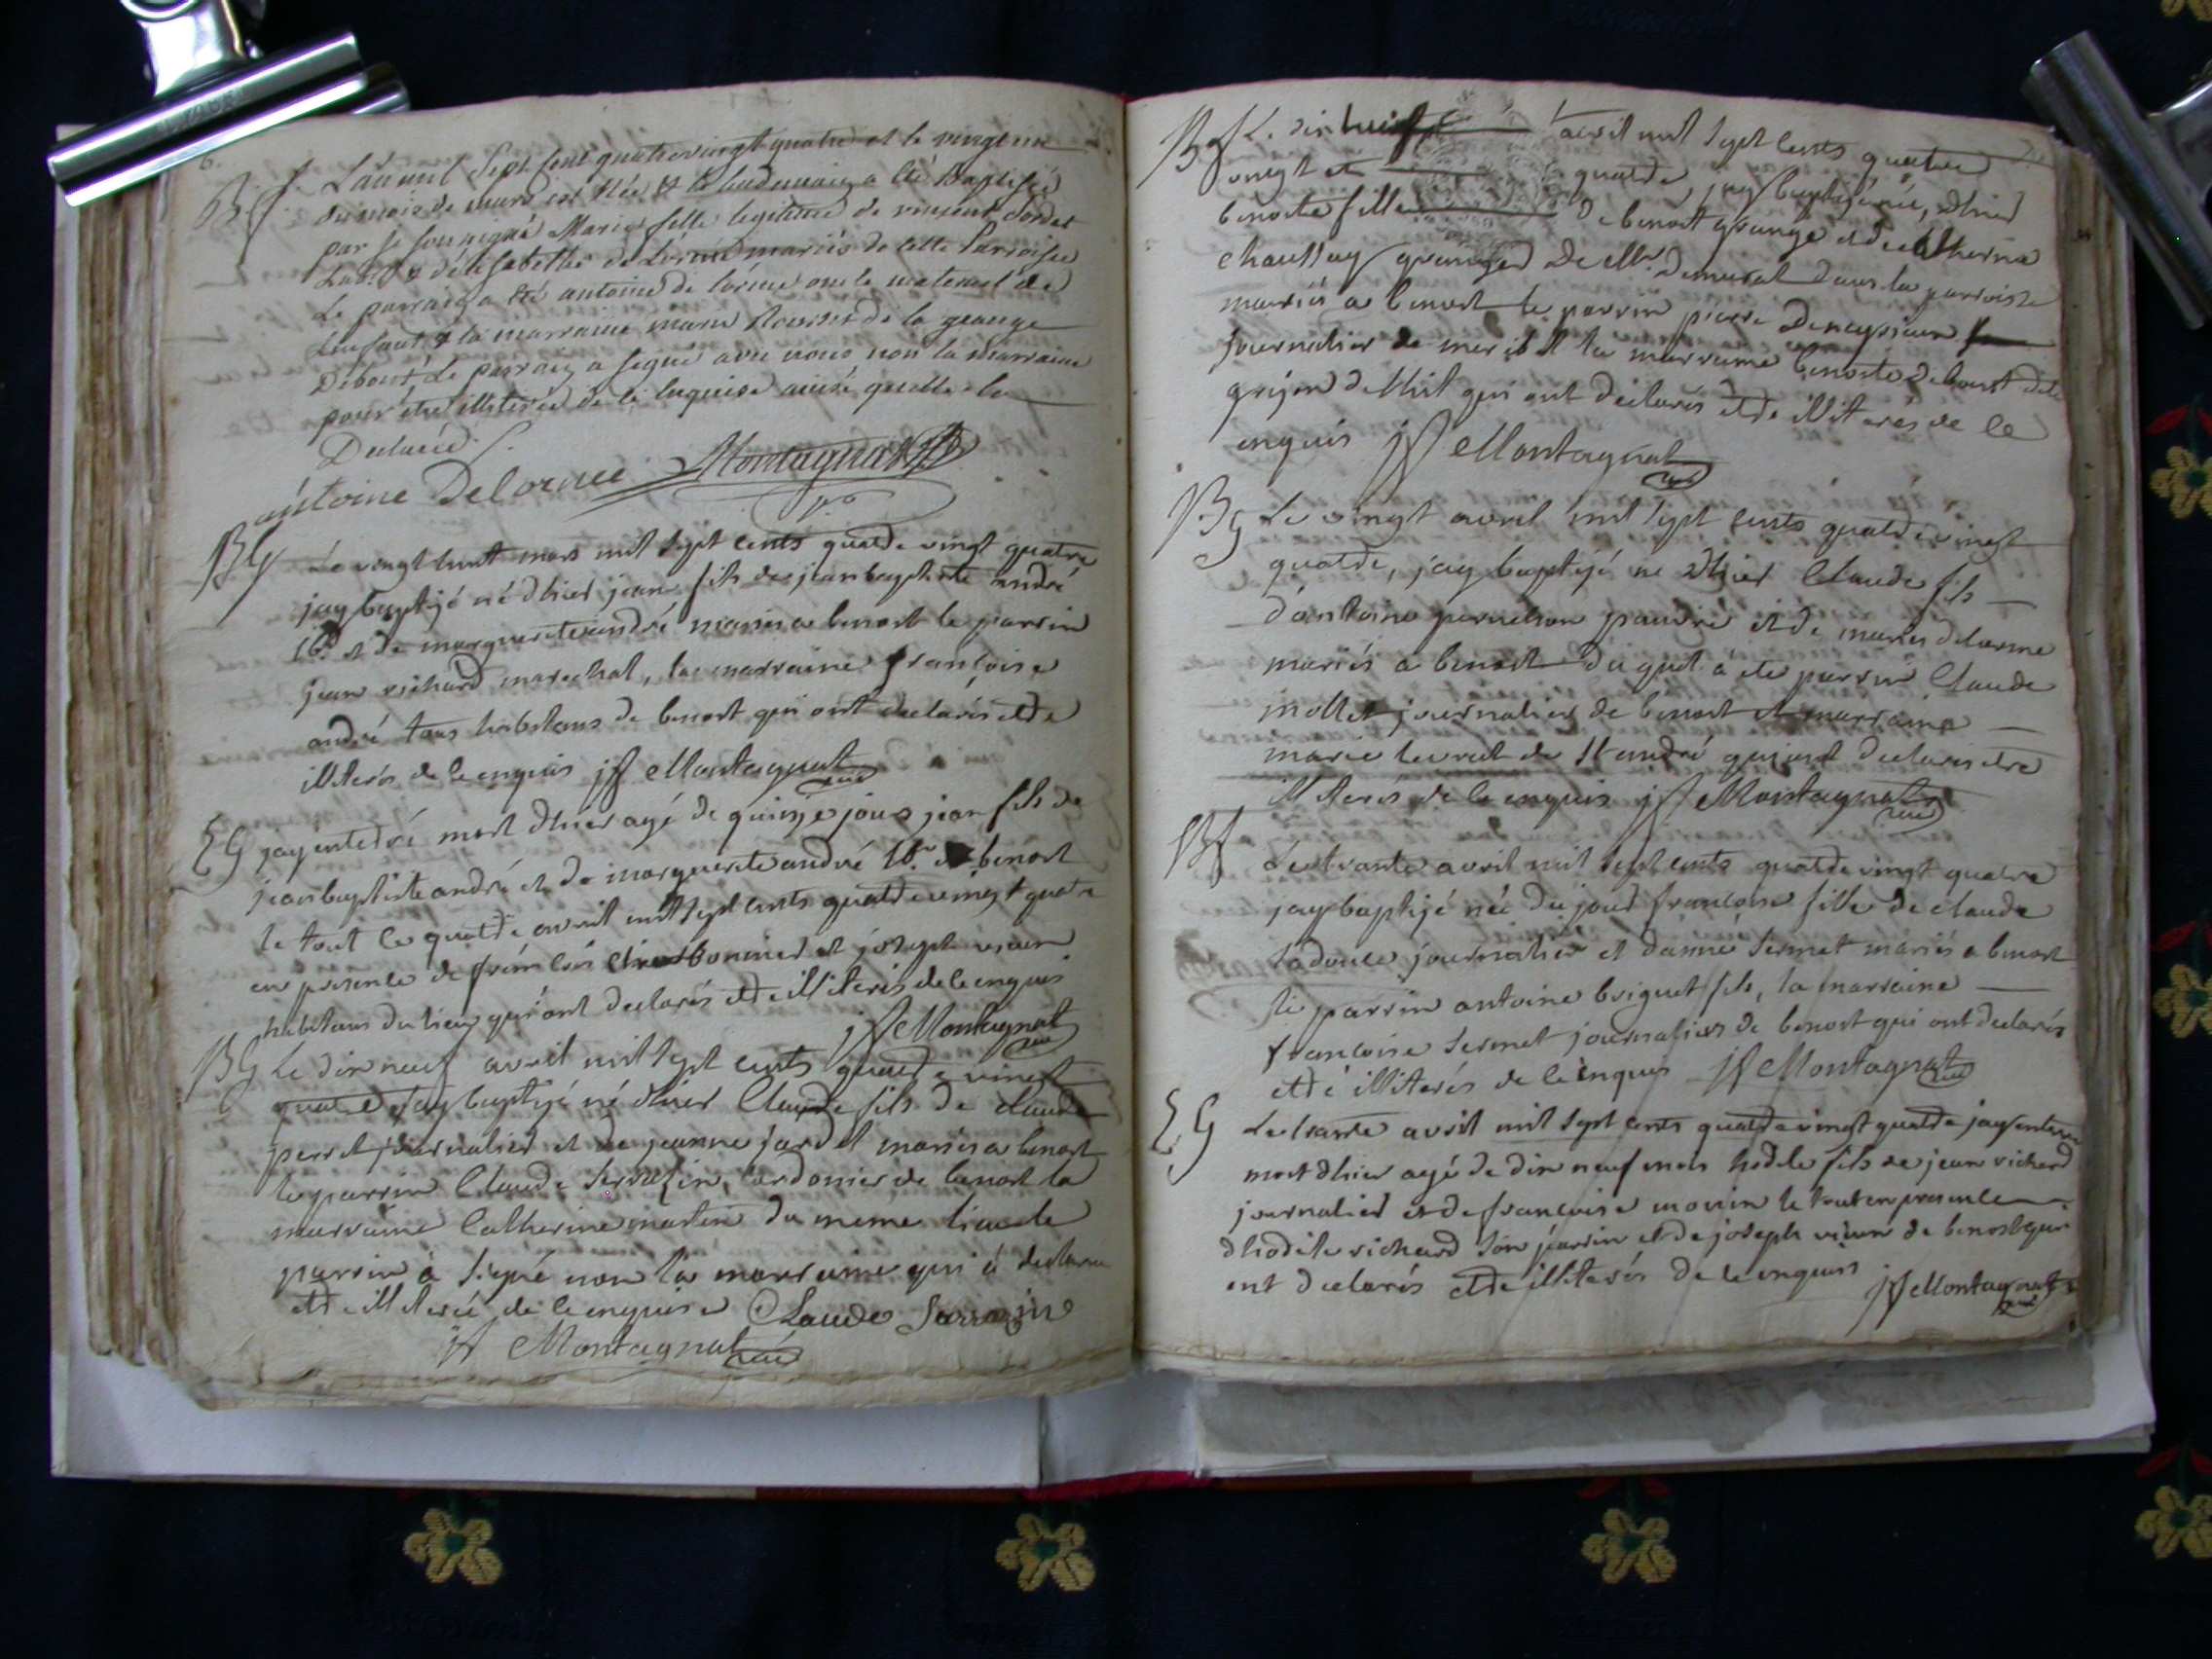 6.
B f L'an mil sept cent quatrevingt quatre et le vingt un
du mois de mars est née et le lendemain a été Baptisée
par je soussigné Marie fille legitime de vincent Jordet
Lab.r & d'elisabethe de Lorme mariés de cette Parroisse
Le parrain a été antoine de lorme oncle maternel de
l'enfant & la marraine marie de la grange
Debout, Le parrain a signé avec nous non la marraine
pour être illiterée de ce enquise ainsi qu'elle l'a
Declaré
antoine Delorme Montagnat
B G Le vingt huit mars mil sept cents quatre vingt quatre
jay baptisé né dhier jean fils de jean baptiste andré
lb.r et de marguerite andré mariés a benost le parrin
jean richard marechal, la marraine françoise
andré tous habitans de benost qui ont declarés etre
illiterés de ce enquis jf Montagnat
E G jay enterré mort dhier agé de quinze jours jean fils de
jean baptiste andré et de marguerite andré lb.r de benost
le tout le quatre avril mil sept cents quatre vingt quatre
en presence de françois charbonnier et joseph vieux
habitans du lieu qui ont declarés etre illiterés de ce enquis
jf Montagnat
B G Le dix neuf avril mil sept cents quatre vingt
quatre jay baptisé né dhier Claude fils de claude
perret journalier et de jeanne jardet mariés a benost
le parrin Claude Serrazin, cordonier de benost la
marraine Catherine martin du meme lieu le
parrin à signé non la marraine qui à declaré
etre illiterée de ce enquise Claude Sarrazin
jf Montagnat
B G Le dix huit avril mil sept cents quatre
vingt et quatre, jay baptisé née, dhier
benoite fille de benoit grange et de catherine
chaussay granger de Mr Demurat dans la parroisse
mariés a benost le parrin pierre
journalier de et la marraine benoite debout
qui ont declarés etre illiterés de ce
enquis jf Montagnat
B G Le vingt avril mil sept cents quatre vingt
quatre, jay baptisé né dhier Claude fils
d'antoine pauvre et de marie delorme
mariés a benost duquel à ete parrin Claude
mollet journalier de benost et marraine
marie levrat de St andré qui ont declarés etre
illiterés de ce enquis jf Montagnat
Le trante avril mil sept cents quatre vingt quatre
jay baptisé née du jour françoise fille de claude
ladouce journalier et danne Sermet mariés a benost
le parrin antoine briguet fils, la marraine
françoise Sermet journaliers de benost qui ont declarés
etre illiterés de ce enquis jf Montagnat
E G Le trante avril mil sept cents quatre vingt quatre jay enterré
mort dhier agé de dix neuf mois hodile fils de jean richard
journalier et de françoise morin le tout en presence
dhodile richard son parrin et de joseph vieux de benost qui
ont declarés etre illiterés de ce enquis jf Montagnat